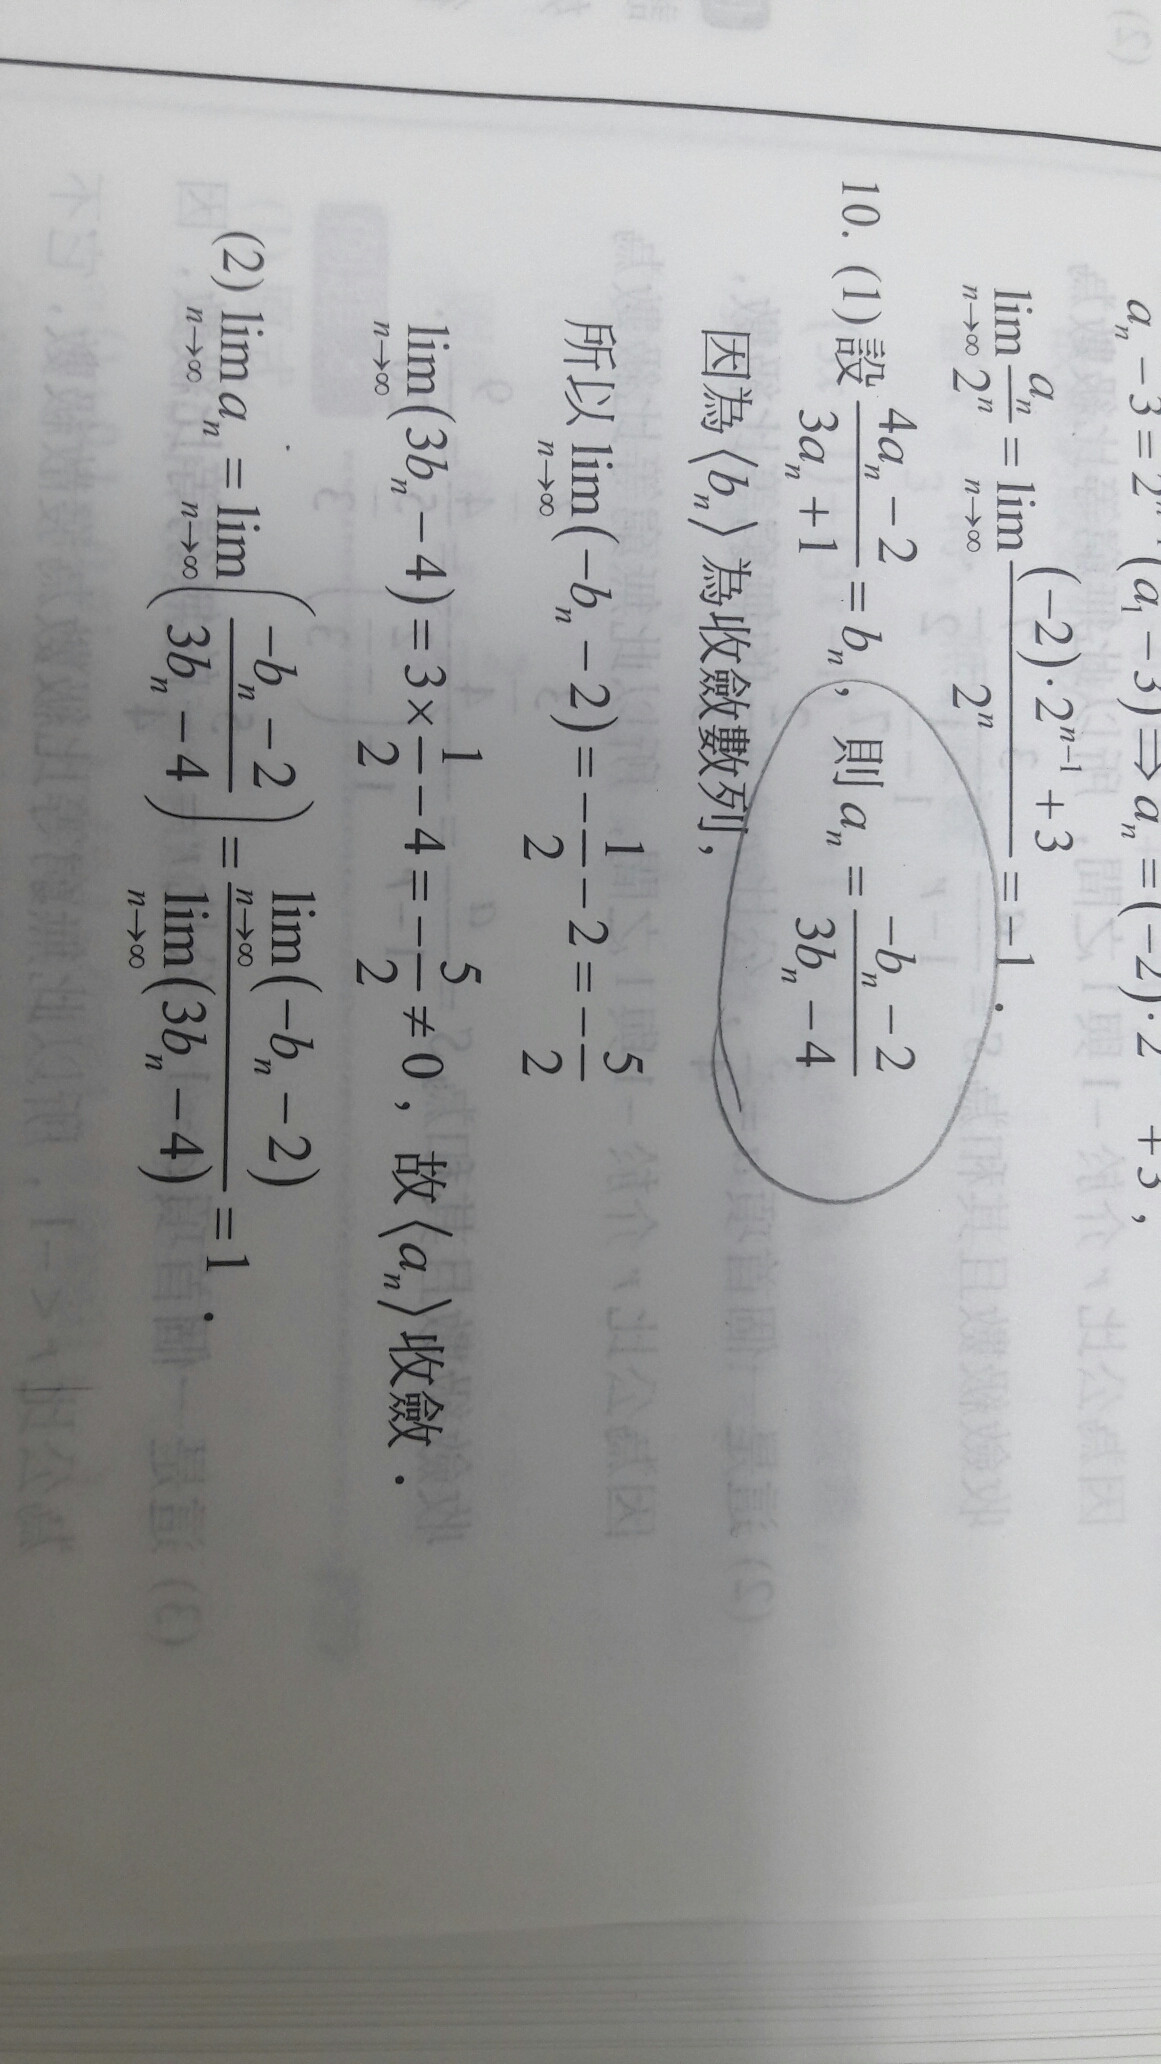 aₙ − 3 = 2ⁿ⁻¹(a₁ − 3) ⇒ aₙ = (−2)·2 + 3,
lim_{n→∞} aₙ/2ⁿ = lim_{n→∞} ((−2)·2ⁿ⁻¹ + 3)/2ⁿ = −1.
10. (1) 設 (4aₙ − 2)/(3aₙ + 1) = bₙ, 則 aₙ = (−bₙ − 2)/(3bₙ − 4)
因為 ⟨bₙ⟩ 為收斂數列,
所以 lim_{n→∞} (−bₙ − 2) = −1/2 − 2 = −5/2
lim_{n→∞} (3bₙ − 4) = 3 × 1/2 − 4 = −5/2 ≠ 0, 故 ⟨aₙ⟩ 收斂.
(2) lim_{n→∞} aₙ = lim_{n→∞} ((−bₙ − 2)/(3bₙ − 4)) = lim_{n→∞} (−bₙ − 2)/lim_{n→∞} (3bₙ − 4) = 1.